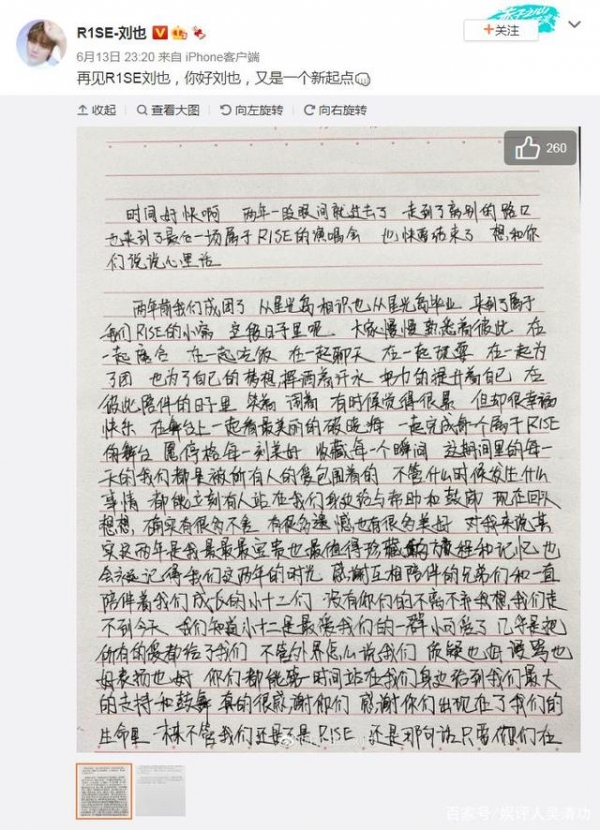 R1SE-刘也
6月13日 23:20 来自 iPhone客户端
+关注
再见R1SE刘也，你好刘也，又是一个新起点
收起 查看大图 向左旋转 向右旋转
260
时间好快啊 两年一眨眼间就过去了 走到了离别的路口
也来到了最后一场属于R1SE的演唱会 也快要结束了 想和你
们说说心里话
两年前我们成团了 从星光岛相识也从星光岛毕业 来到了属于
我们R1SE的小窝 在一起的日子里呢 大家慢慢熟悉着彼此 在
一起宿舍 在一起吃饭 在一起聊天 在一起玩耍 在一起为
了团 也为了自己的梦想挥洒着汗水 努力的提升着自己 在
彼此陪伴的日子里 笑着 闹着 有时候觉得很累 但却很幸福
快乐 在舞台上一起看最美丽的 一起完成每一个属于R1SE
的舞台 愿停格每一刻美好 收藏每一个瞬间 这期间里的每一
天的我们都是被所有人的爱包围着的 不管什么时候发生什么
事情 都能立刻有人站在我们身边给与帮助和鼓励 现在回头
想想 确实有很多不舍 有很多遗憾也有很多美好 对我来说其
实这两年是我最最最宝贵也最值得珍藏的旅程和记忆 也
会永远记得我们这两年的时光 感谢互相陪伴的兄弟们和一直
陪伴着我们成长的小十二们 没有你们的不离不弃我想我们走
不到今天 我们知道小十二是最爱我们的一群小可爱了 几乎是把
所有的爱都给了我们 不管外界怎么说我们 质疑也好 谩骂也
好表扬也好 你们都能第一时间站在我们身边给到我们最大
的支持和鼓舞 真的很感谢你们 感谢你们出现在了我们的
生命里 不管我们还是不是R1SE 还是那句话只要你们在
百家号/娱评人吴清功